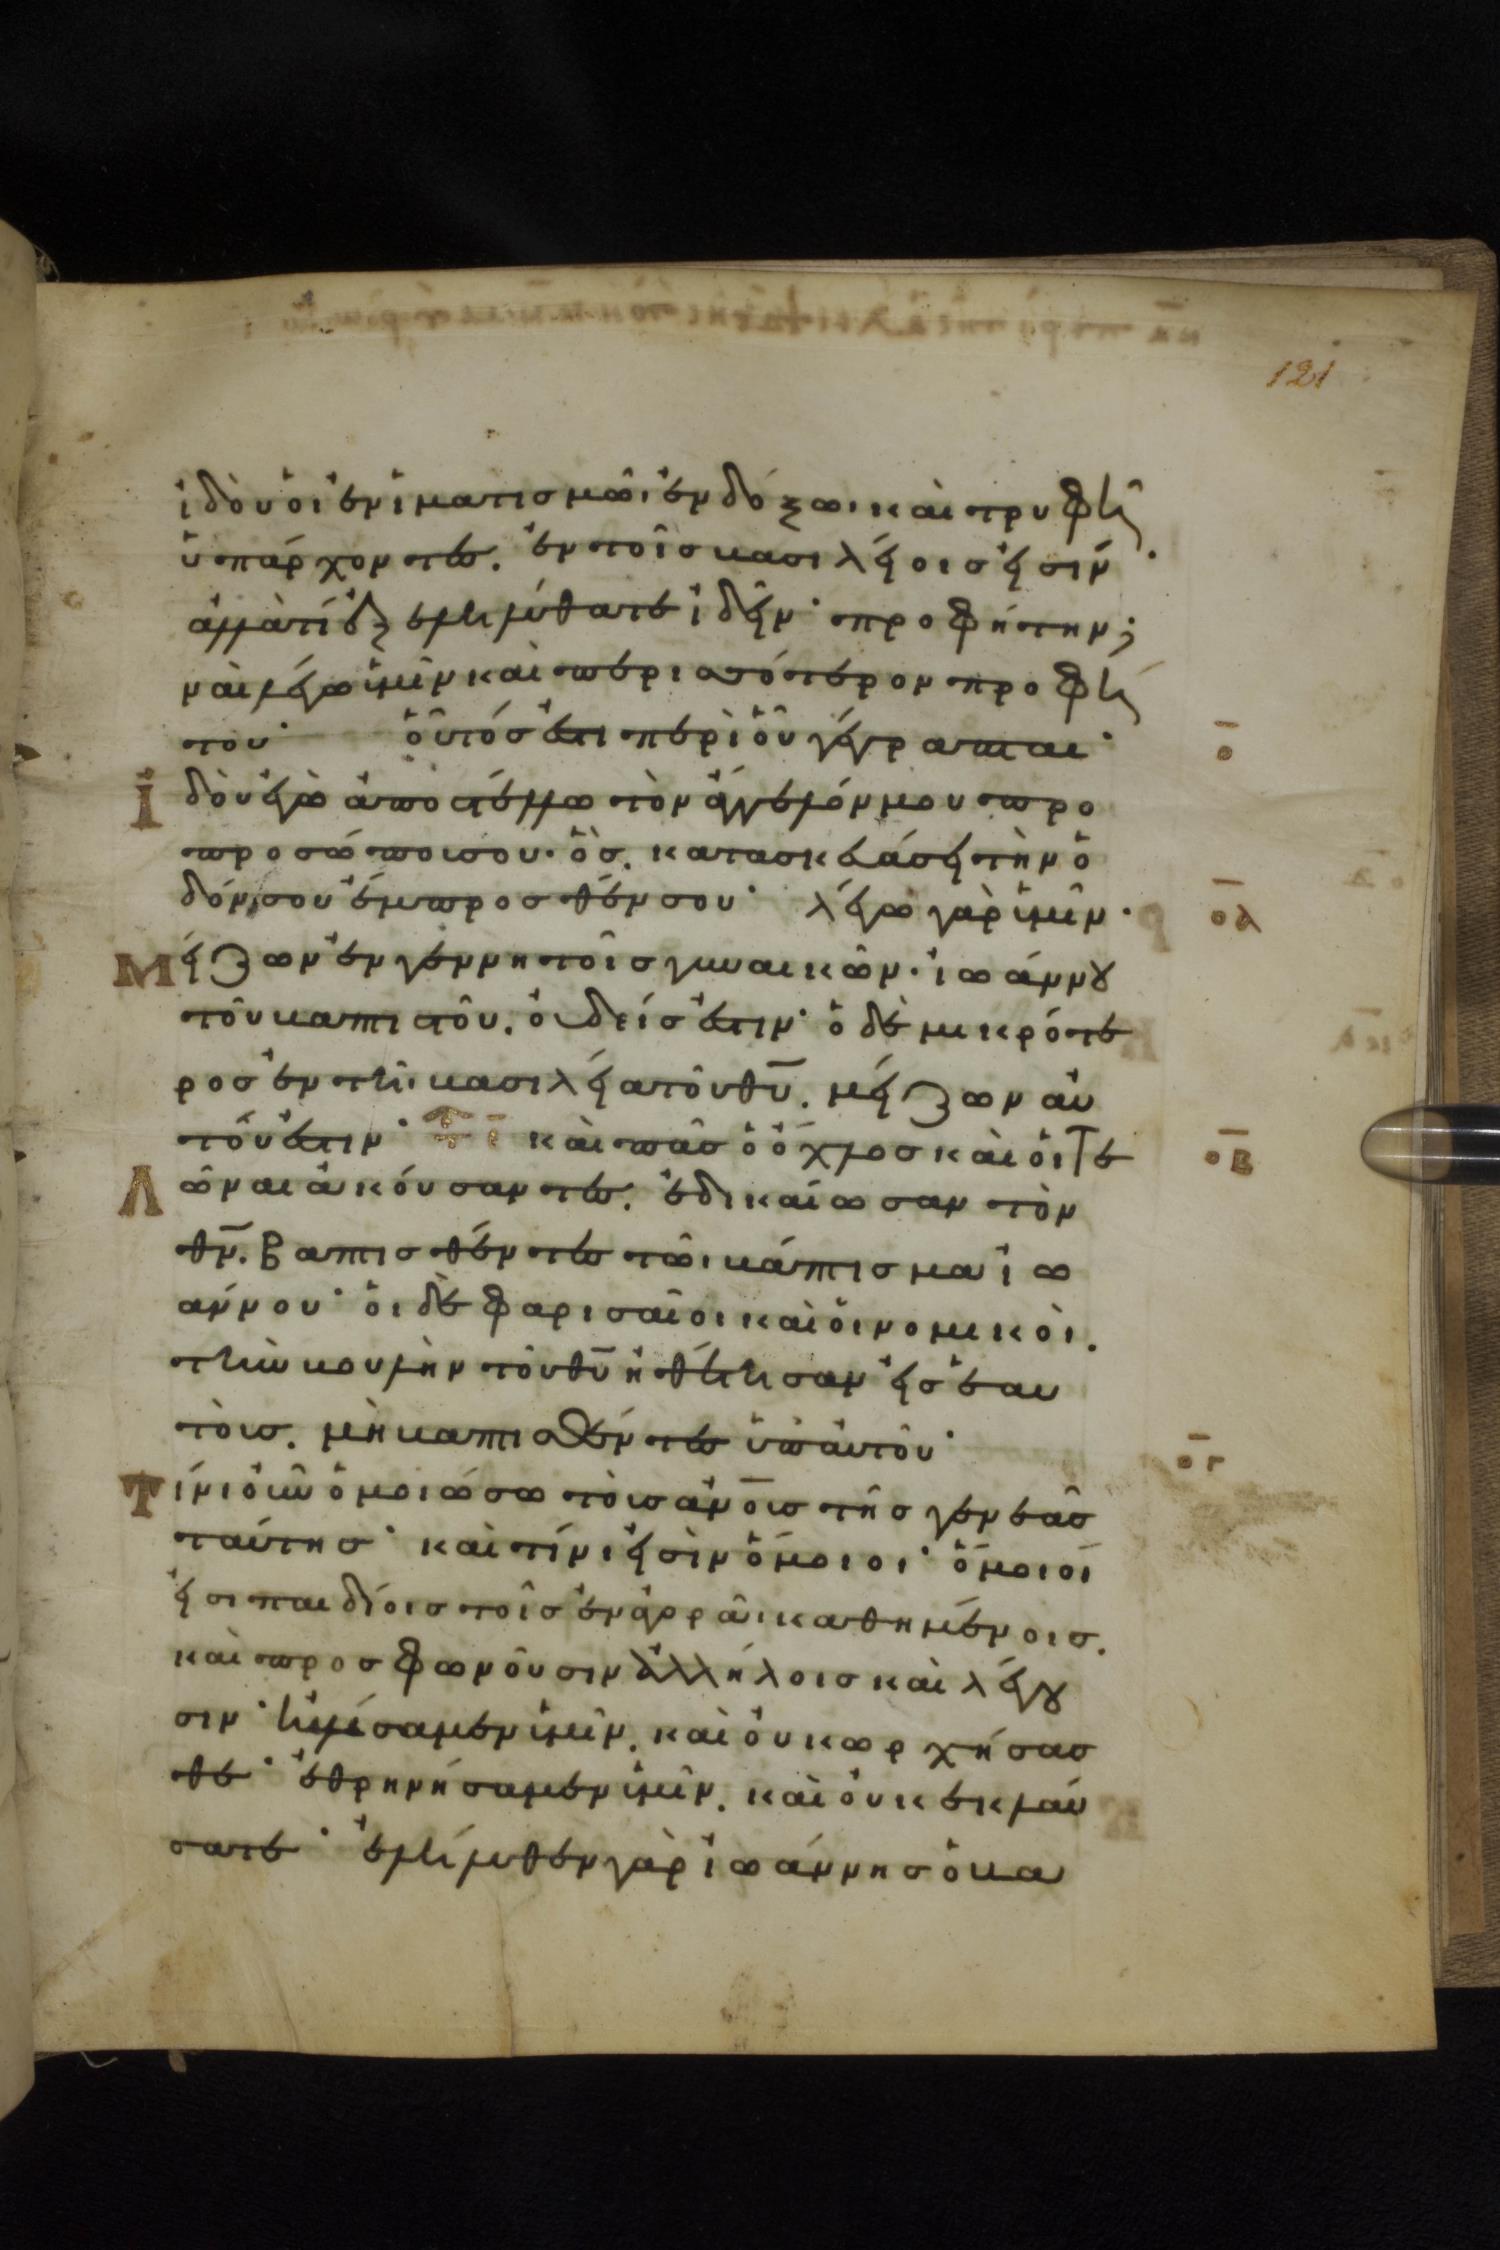 121
ἰδοὺ οἱ ἐν ἱματισμῶι ἐνδόξωι καὶ τρυφῆ
ὑπάρχοντες. ἐν τοῖς βασιλείοις εἰσίν·
ἀλλὰ τί ἐξεληλύθατε ἰδεῖν· προφήτην;
ναὶ λέγω ὑμῖν καὶ περισσότερον προφή
του· οὗτός ἐστι περὶ οὗ γέγραπται· ο̅
Ἰδοὺ ἐγὼ ἀποστέλλω τὸν ἄγγελόν μου πρὸ
προσώποι σου· ὃς. κατασκευάσει τὴν ὁ
δόν σου ἔμπροσθέν σου· λέγω γὰρ ὑμῖν· ο̅α
Μείζων ἐν γεννητοῖς γυναικῶν· ἰωάννου
τοῦ βαπτιστοῦ. οὐδείς ἐστιν· ὁ δὲ μικρότε
ρος ἐν τῆι βασιλείᾳ τοῦ θ̅υ̅. μείζων αὐ
τοῦ ἐστιν· καὶ πᾶς ὁ ὄχλος καὶ οἱ τε ο̅β
Λῶναι ἀκούσαντες. ἐδικαίωσαν τὸν
θ̅ν̅. βαπτισθέντες τῶι βάπτισμα ἰω
άννου· οἱ δὲ φαρισαῖοι καὶ οἱ νομικοὶ.
τὴν βουλὴν τοῦ θ̅υ̅ ἠθέτησαν εἰς ἑαυ
τοὺς. μὴ βαπτισθέντες ὑπ' αὐτοῦ· ο̅γ
Τίνι οὖν ὁμοιώσω τοὺς ἀν̅ο̅υς τῆς γενεᾶς
ταύτης· καὶ τίνι εἰσὶν ὅμοιοι· ὅμοιοί
εἰσι παιδίοις τοῖς ἐν ἀγορᾶι καθημένοις.
καὶ προσφωνοῦσιν ἀλλήλοις καὶ λέγου
σιν· ηὐλήσαμεν ὑμῖν. καὶ οὐκ ὠρχήσασ
θε· ἐθρηνήσαμεν ὑμῖν. καὶ οὐκ ἐκλαύ
σατε· ἐλήλυθεν γὰρ ἰωάννης ὁ βα